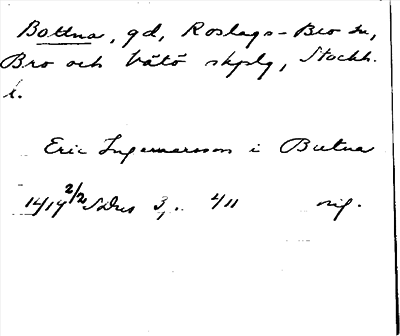 Bottna, gd, Roslags-Bro sn,
Bro och Vätö skplg, Stockh.
l.
Eric Ingemarsson i Butna
1419 2/2 SDns 3, . 411 orig.